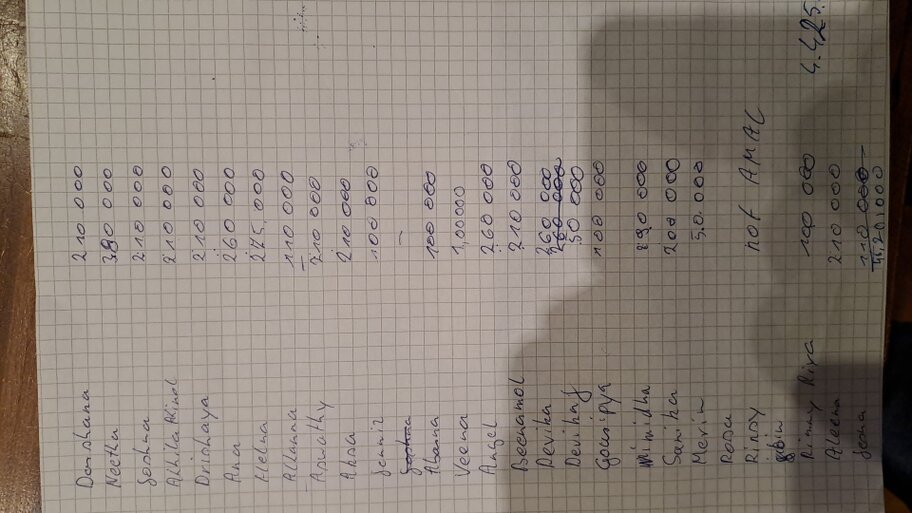 Darshana 210 000
Neetha 380 000
Goshna 210 000
Akhila Akinol 210 000
Drishaya 210 000
Ana 260 000
Aleena 275.000
Aleenna 110 000
Aswathy 210 000
Ahsa 210 000
Jennit 100 000
–
Abana 100 000
Veena 1,00000
Angel 260 000
Beenamol 210 000
Devika 260 000
Devika 50 000
100 000
Nimidha 290 000
Saniha 200 000
Merin 50.000
Rosa
Rinoy not AMAL
Jibin
Rinny Riya 100 000
Aleena 210 000
Jesna 110 000
4.4.25.